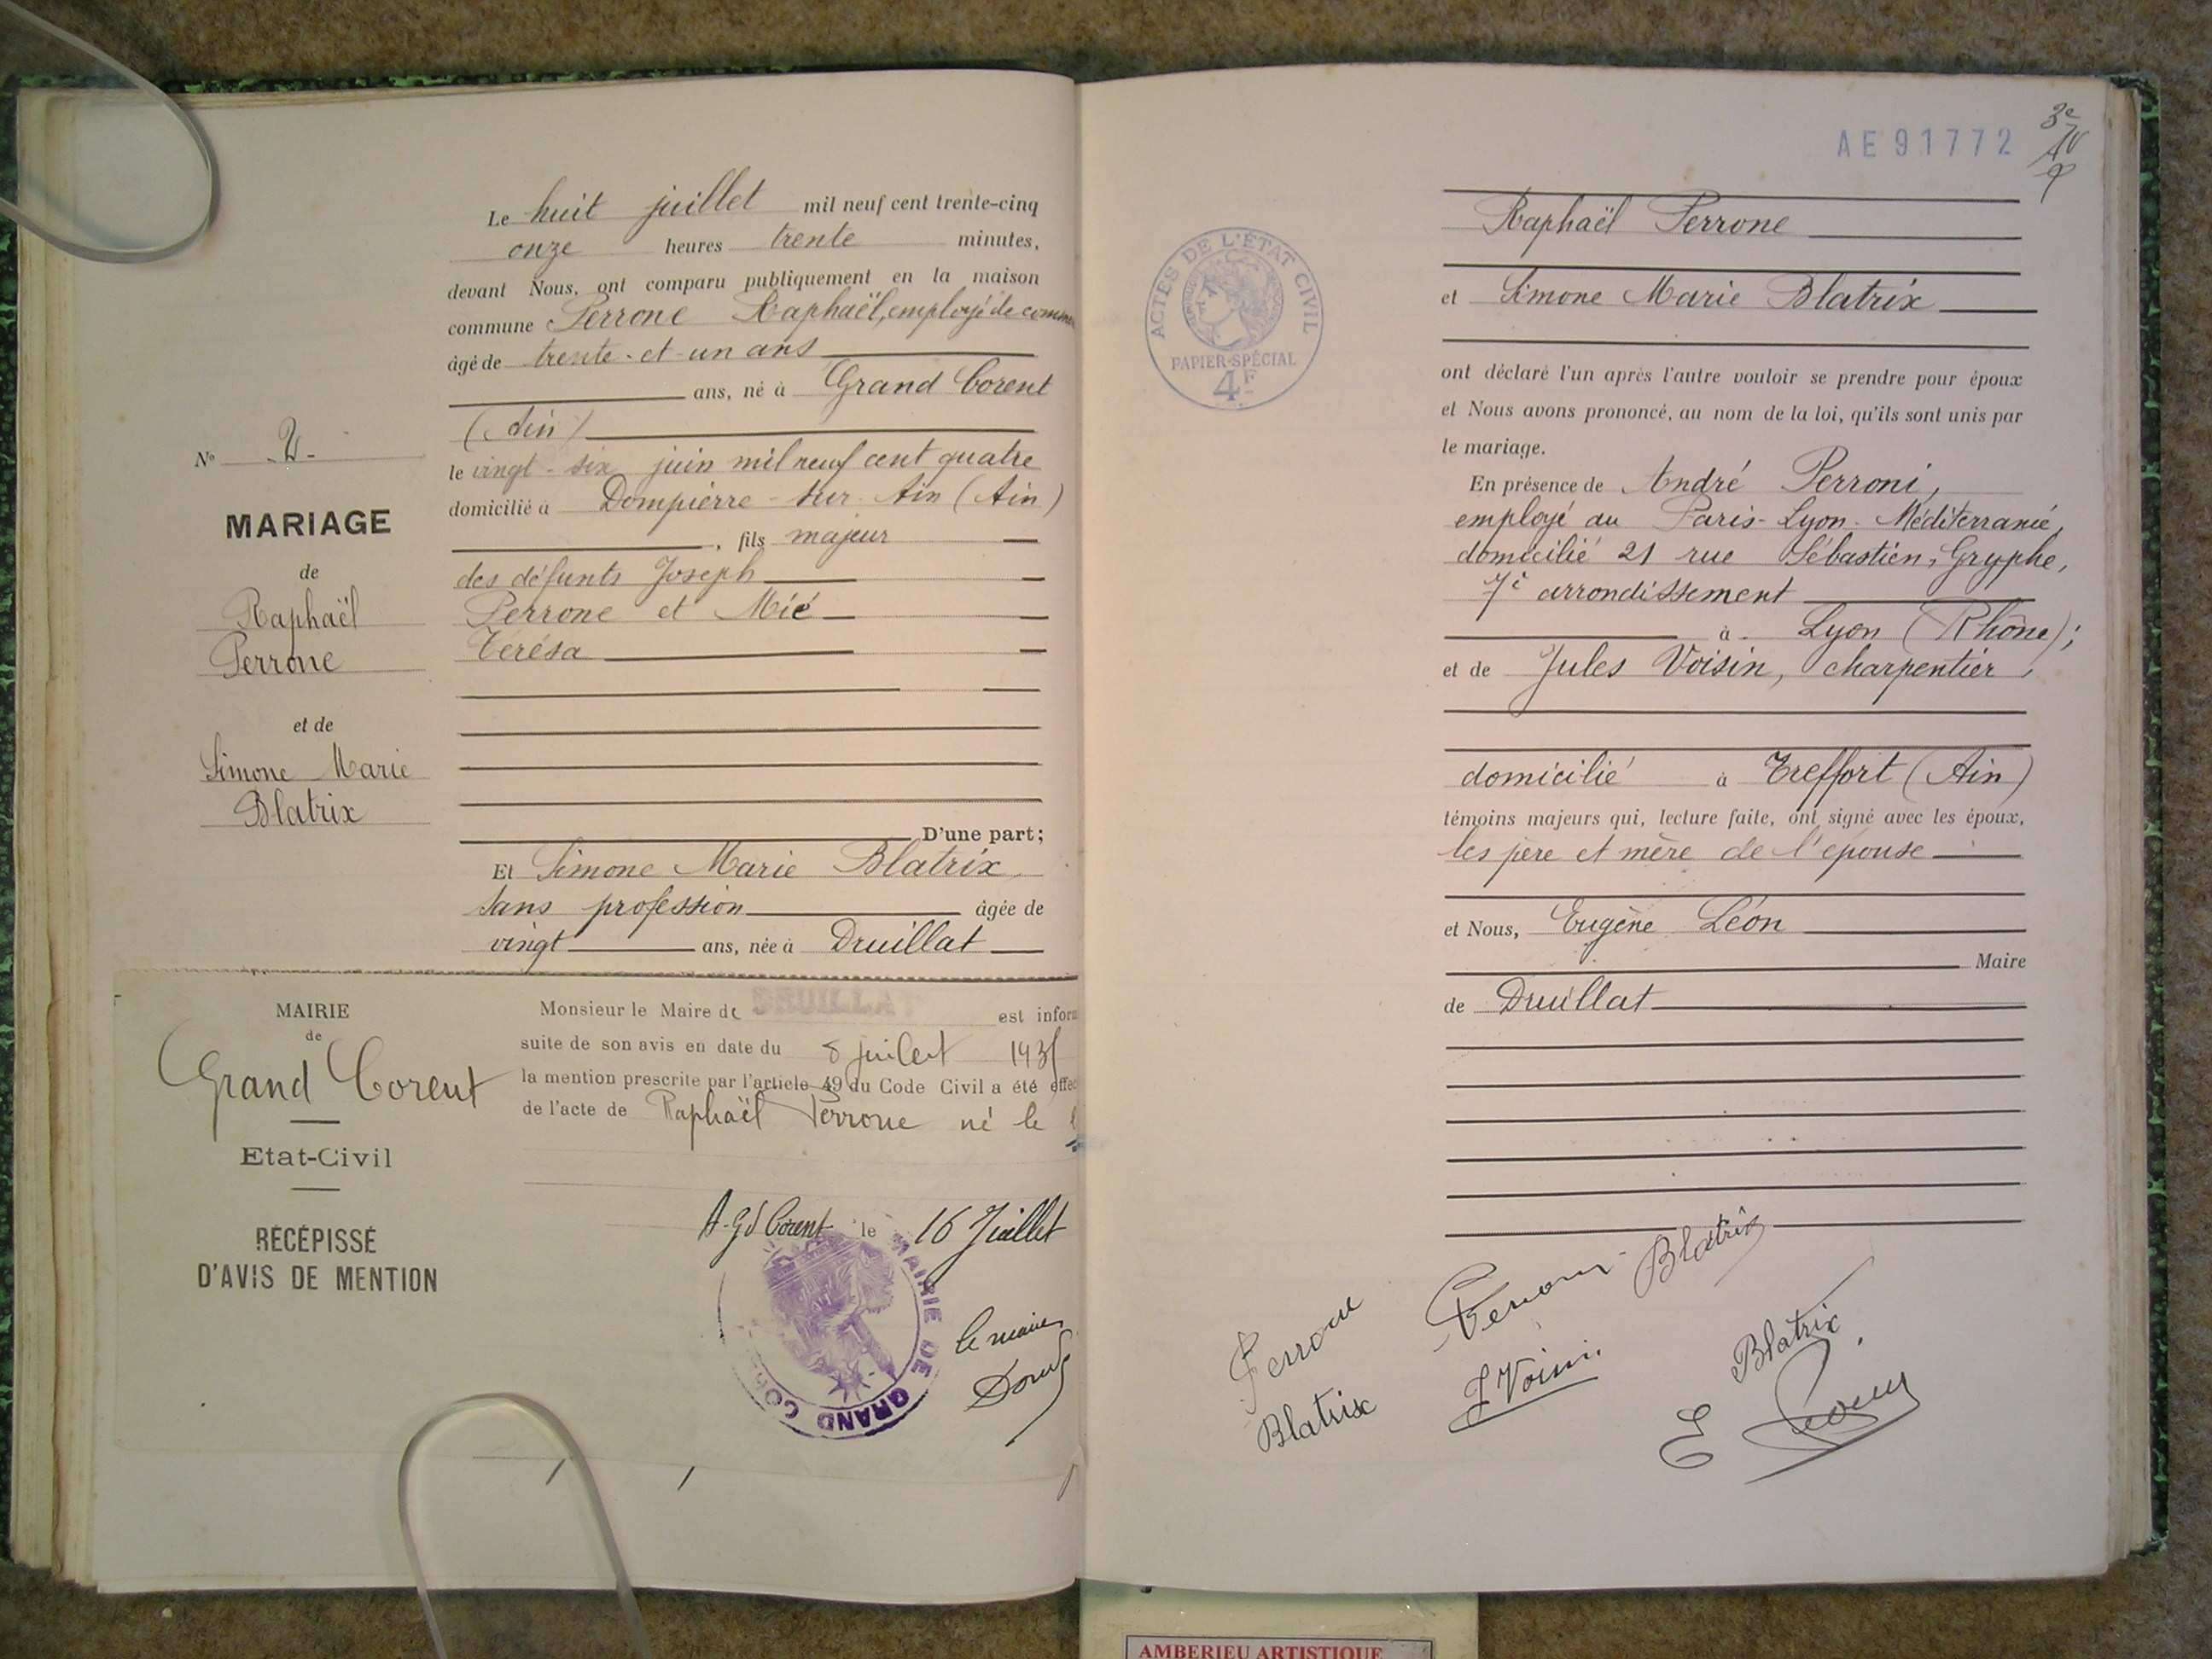 N° 2
MARIAGE
de
Raphaël
Perrone
et de
Simone Marie
Blatrix
Le huit juillet mil neuf cent trente-cinq
onze heures trente minutes,
devant Nous, ont comparu publiquement en la maison
commune Perrone Raphaël, employé de comm
âgé de trente-et-un ans
ans, né à Grand Corent
(Ain)
le vingt-six juin mil neuf cent quatre
domicilié à Dompierre-sur-Ain (Ain)
, fils majeur
des défunts Joseph
Perrone et Mié
Térésa
D'une part;
Et Simone Marie Blatrix
sans profession âgée de
vingt ans, née à Druillat
MAIRIE
de
Grand Corent
Etat-Civil
RÉCÉPISSÉ
D'AVIS DE MENTION
Monsieur le Maire de DRUILLAT est inform
suite de son avis en date du 8 juillet 1935
la mention prescrite par l'article 49 du Code Civil a été effec
de l'acte de Raphaël Perrone né le
A Gd Corent le 16 Juillet
MAIRIE DE GRAND CO
le maire
AE91772
3e
ACTES DE L'ÉTAT CIVIL
PAPIER-SPÉCIAL
4F
Raphaël Perrone
et Simone Marie Blatrix
ont déclaré l'un après l'autre vouloir se prendre pour époux
et Nous avons prononcé, au nom de la loi, qu'ils sont unis par
le mariage.
En présence de André Perroni,
employé au Paris-Lyon-Méditerranée,
domicilié 21 rue Sébastien-Gryphe,
7e arrondissement
à Lyon (Rhône);
et de Jules Voisin, charpentier,
domicilié à Treffort (Ain)
témoins majeurs qui, lecture faite, ont signé avec les époux,
les père et mère de l'épouse
et Nous, Eugène Léon
Maire
de Druillat
Perrone Perroni Blatrix
Blatrix J Voisin Blatrix
E Léon
AMBERIEU ARTISTIQUE